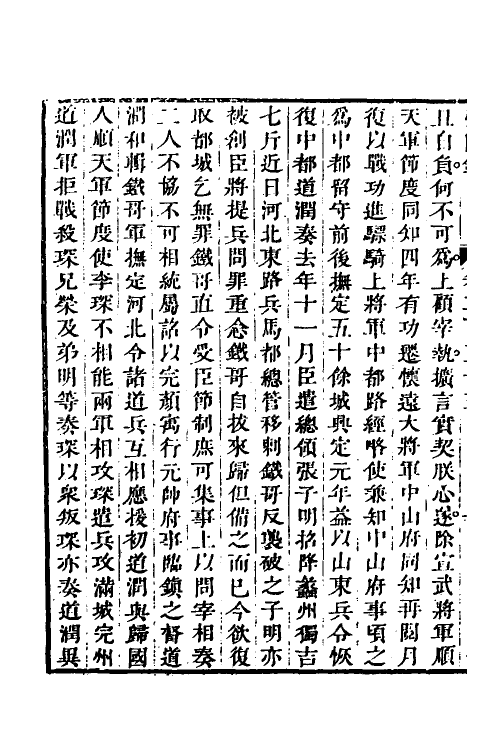 且自負何不可爲上顧宰執擴言實契朕心遂除宣武將軍順
天軍節度同知四年有功遷懷遠大將軍中山府同知再閱月
復以戰功進驃騎上將軍中都路經略使兼知中山府事頃之
爲中都留守前後撫定五十餘城興定元年益以山東兵令恢
復中都道潤奏去年十一月臣遣總領張子明招降蠡州獨吉
七斤近日河北東路兵馬都總管移剌鐵哥反襲破之子明亦
被創臣將提兵問罪重念鐵哥自拔來歸但備之而已今欲復
取都城乞無罪鐵哥直令受臣節制庶可集事上以問宰相奏
二人不協不可相統屬詺以完顏寓行元帥府事臨鎮之督道
潤和輯鐵哥軍撫定河北令諸道兵互相應援初道潤與歸國
人順天軍節度使李琛不相能兩軍相攻琛遣兵攻滿城完州
道潤軍拒戰殺琛兄榮及弟明等奏琛以衆叛琛亦奏道潤與